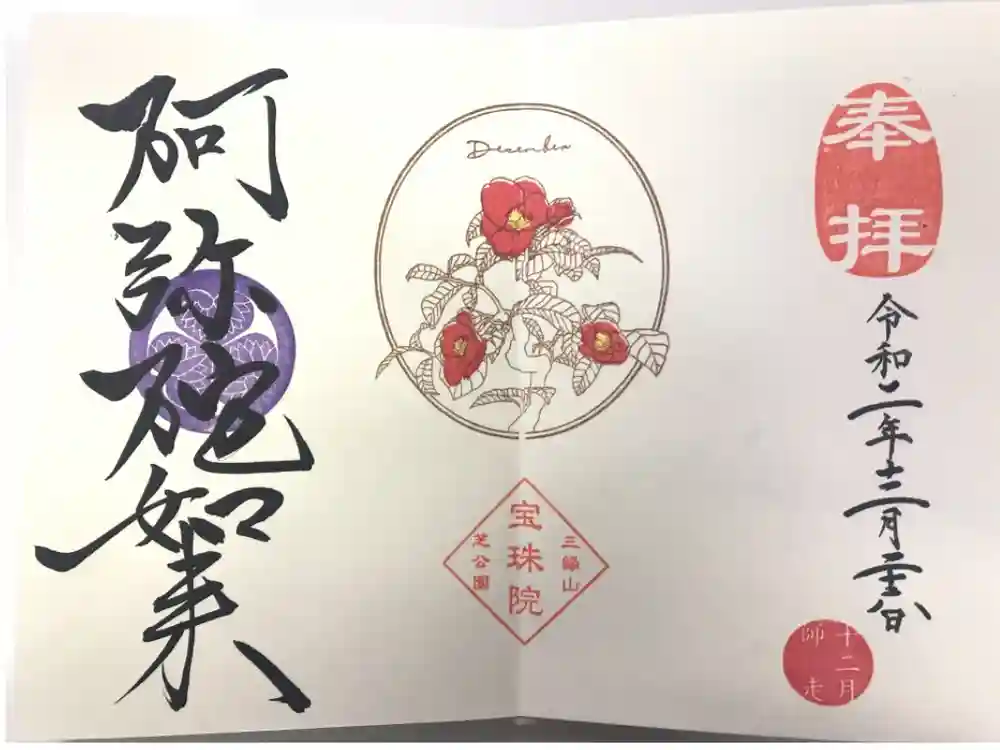 奉拝
令和二年十二月
十二月
師走
December
三縁山
宝珠院
芝公園
阿弥陀如来